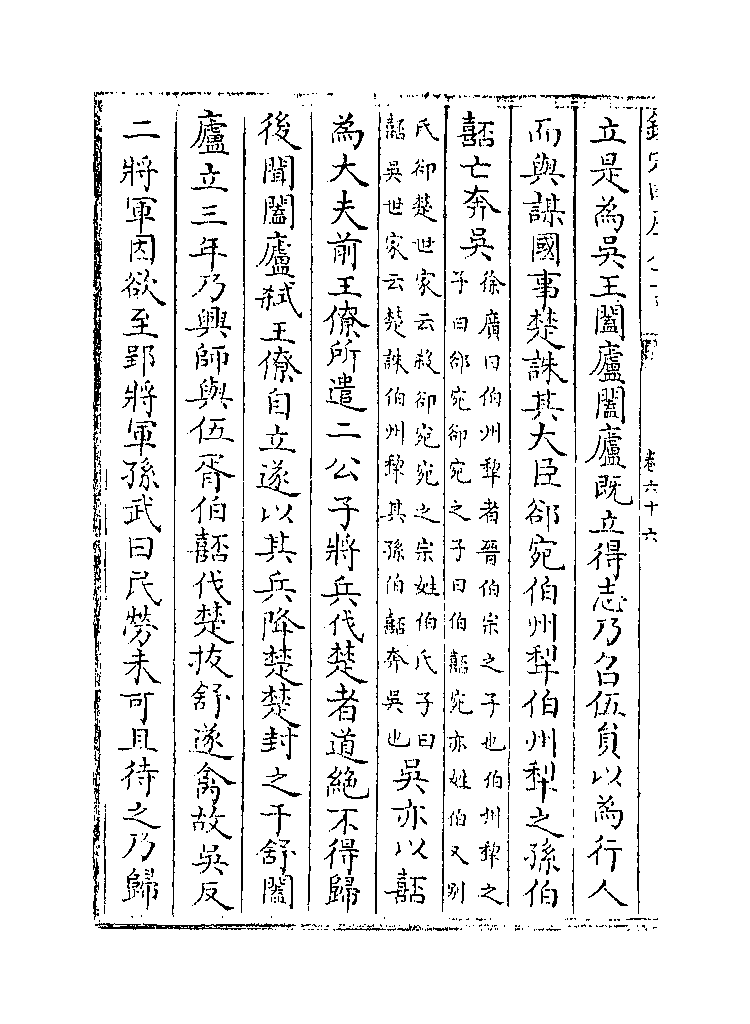 欽定四庫全書
卷六十六
立是為吳王闔廬闔廬既立得志乃召伍員以為行人
而與謀國事楚誅其大臣郤宛伯州犂伯州犂之孫伯
嚭亡奔吳
徐廣曰伯州犂者晉伯宗之子也伯州犂之
子曰郤宛郤宛之子曰伯嚭宛亦姓伯又别
氏郤楚世家云殺郤宛宛之宗姓伯氏子曰
嚭吳世家云楚誅伯州犂其孫伯嚭奔吳也
吳亦以嚭
為大夫前王僚所遣二公子將兵伐楚者道絶不得歸
後聞闔廬弑王僚自立遂以其兵降楚楚封之于舒闔
廬立三年乃興師與伍胥伯嚭伐楚拔舒遂禽故吳反
二將軍因欲至郢將軍孫武曰民勞未可且待之乃歸